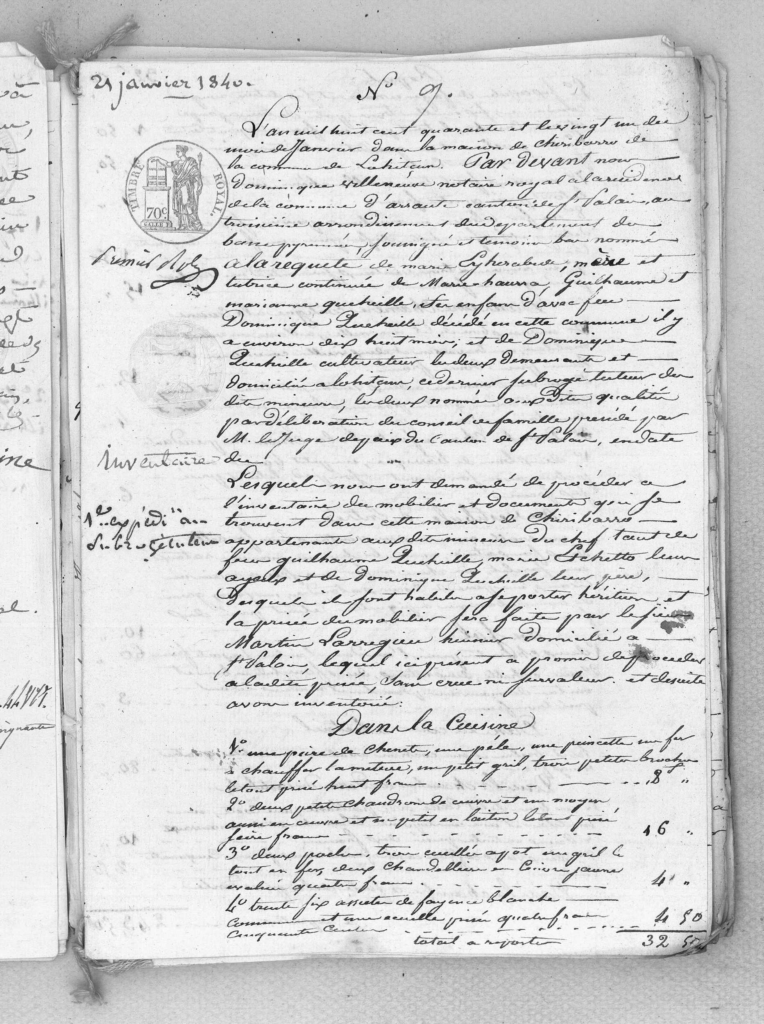 21 janvier 1840.
N° 9.
L'an mil huit cent quarante et le vingt un du
mois de Janvier dans la maison de chiribarro de
la commune de Lohitzun. Par devant nous
Dominique Villeneuve notaire royal à la residence
de la commune d'arraute canton de St Palais, au
troisième arrondissement du departement des
basses pyrennées, soussigné et temoins bas nommés
TIMBRE ROYAL.
70c
Premier Role
a la requete de marie Eyherabide, mère et
tutrice continuée de Marie haurra, Guilhaume et
marianne queheille, ses enfans d'avec feu
Dominique Queheille décédé en cette commune il y
a environ dix huit mois, et de Dominique
Queheille cultivateur les deux demeurants et
domiciliés a lohitzun, ce dernier subrogé tuteur des
dits mineurs, les deux nommés aux dites qualités
par délibération du conseil de famille presidé par
M. le Juge de paix du Canton de St Palais, en date
du
Inventaire
Lesquels nous ont demandé de procéder a
l'inventaire du mobilier et documents qui se
trouvent dans cette maison de Chiribarro
1re expédion au
Subrogé tuteur
appartenants aux dits mineurs du chef tant de
feus guilhaume Queheille, marie Etchetto leurs
ayeux et de Dominique Queheille leur père,
desquels ils sont habiles a se porter héritiers, et
la prisée du mobilier sera faite par le sieur
Martin Larregieu huissier domicilié a
St Palais, lequel ici présent a promis de proceder
a ladite prisée, sans crue ni survaleur. et de suite
avons inventorié:
Dans la Cuisine
1° une paire de Chenets, une péle, une pincette un fer
à chauffer, un petit gril, trois petites broches
le tout prisé huit francs 8 "
2° deux petits chaudrons de cuivre et un moyen
aussi en cuivre et un petit en laiton le tout prisé
seize francs 16 "
3° deux poeles, trois cuillés a pot un gril le
tout en fer, deux Chandelliers en Cuivre jaune
evalué quatre francs 4 "
4° trente six assietes de fayence blanche
commune et une ecuille prisé quatre francs
Cinquante Centimes 4 50
total a reporter 32 50